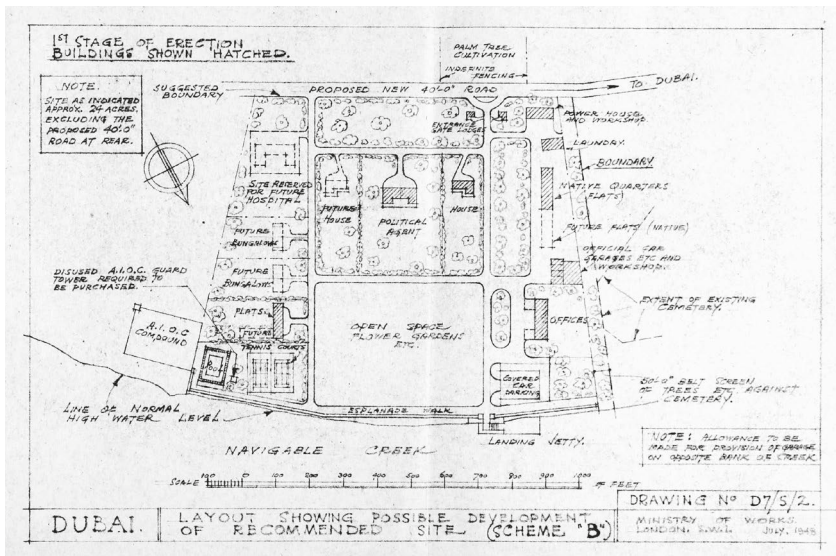 1ST STAGE OF ERECTION
BUILDINGS SHOWN HATCHED.
NOTE.
SITE AS INDICATED
APPROX. 24 ACRES.
EXCLUDING THE
PROPOSED 40'.0"
ROAD AT REAR.
SUGGESTED
BOUNDARY
PALM TREE
CULTIVATION
INDEFINITE
FENCING
PROPOSED NEW 40'.0" ROAD
TO DUBAI.
ENTRANCE
GATE LODGES
POWER HOUSE
AND WORKSHOP.
LAUNDRY.
BOUNDARY
NATIVE QUARTERS
(FLATS)
FUTURE FLATS (NATIVE)
OFFICIAL CAR
GARAGES ETC AND
WORKSHOP.
EXTENT OF EXISTING
CEMETERY.
SITE RESERVED
FOR FUTURE
HOSPITAL
FUTURE
HOUSE
POLITICAL
AGENT
HOUSE
FUTURE
BUNGALOWS
FUTURE
BUNGALOWS
DISUSED A.I.O.C. GUARD
TOWER REQUIRED TO
BE PURCHASED.
A.I.O.C
COMPOUND
FLATS
FUTURE
TENNIS COURTS
OPEN SPACE
FLOWER GARDENS
ETC.
OFFICES
COVERED
CAR
PARKING
BELT SCREEN
OF TREES ETC AGAINST
CEMETERY.
LINE OF NORMAL
HIGH WATER LEVEL
ESPLANADE WALK
LANDING JETTY.
NAVIGABLE CREEK
NOTE: ALLOWANCE TO BE
MADE FOR PROVISION OF GARAGE
ON OPPOSITE BANK OF CREEK
SCALE 100 0 100 200 300 400 500 600 700 800 900 1000 OF FEET
DRAWING NO D7/S/2.
DUBAI.
LAYOUT SHOWING POSSIBLE DEVELOPMENT
OF RECOMMENDED SITE (SCHEME "B")
MINISTRY OF WORKS.
LONDON. S.W.1. JULY. 1948